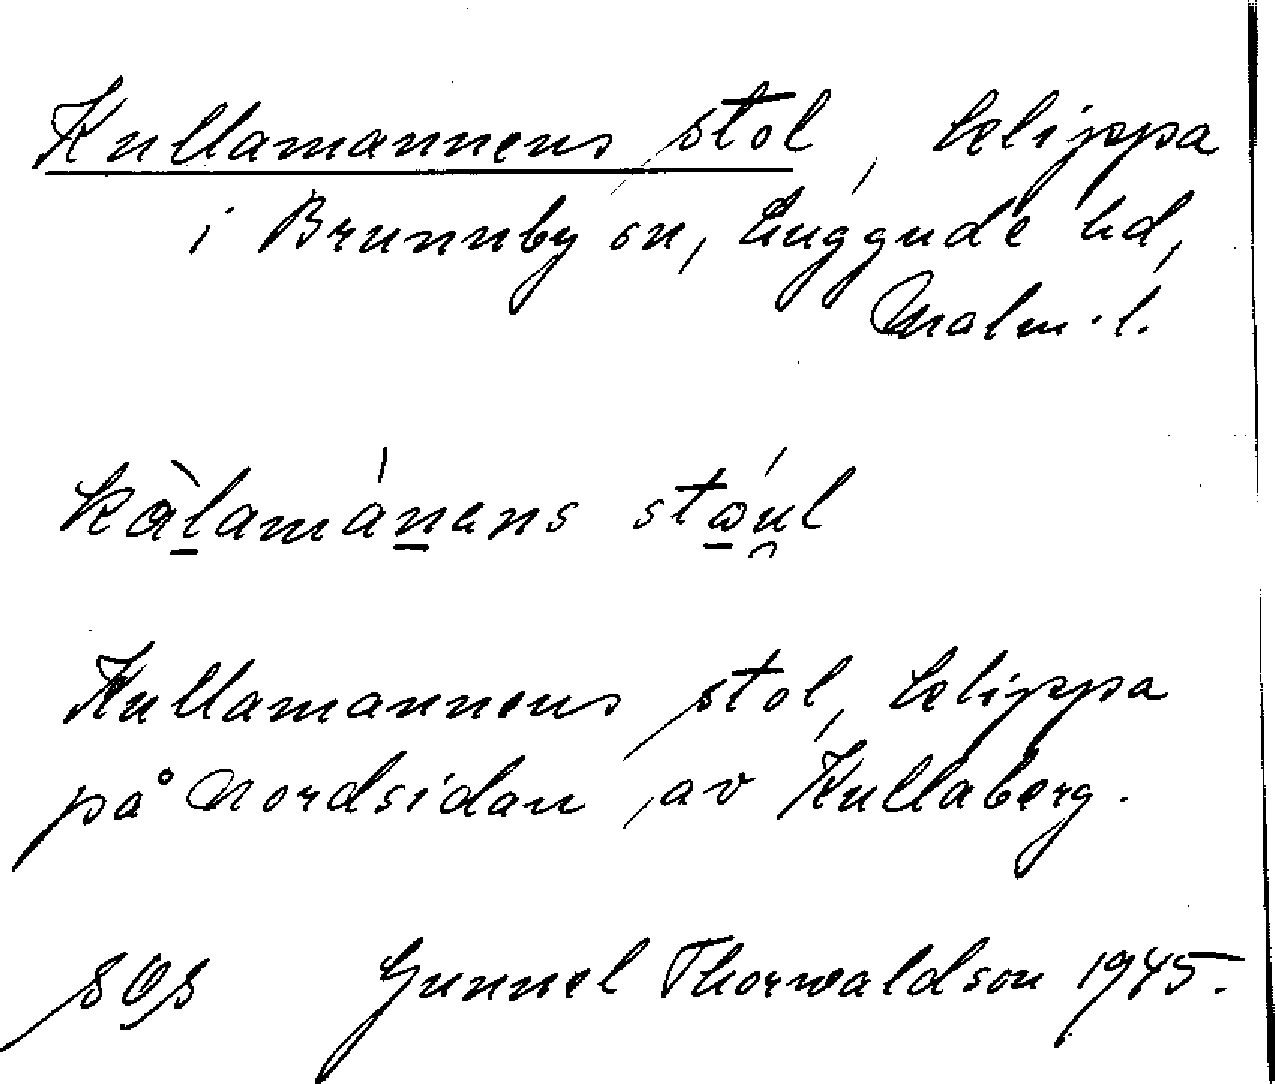 Kullamannens stol, klippa
i Brunnby sn, Luggude hd,
Malm. l.
stǫu̯l
Kullamannens stol, klippa
på Nordsidan av Kullaberg.
SOS Gunnel Thorwaldson 1945.